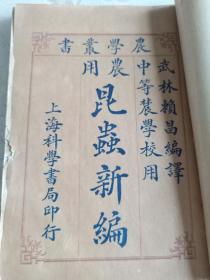 農學叢書
武林賴昌編譯
中等農學校用
農用
昆蟲新編
上海科學書局印行